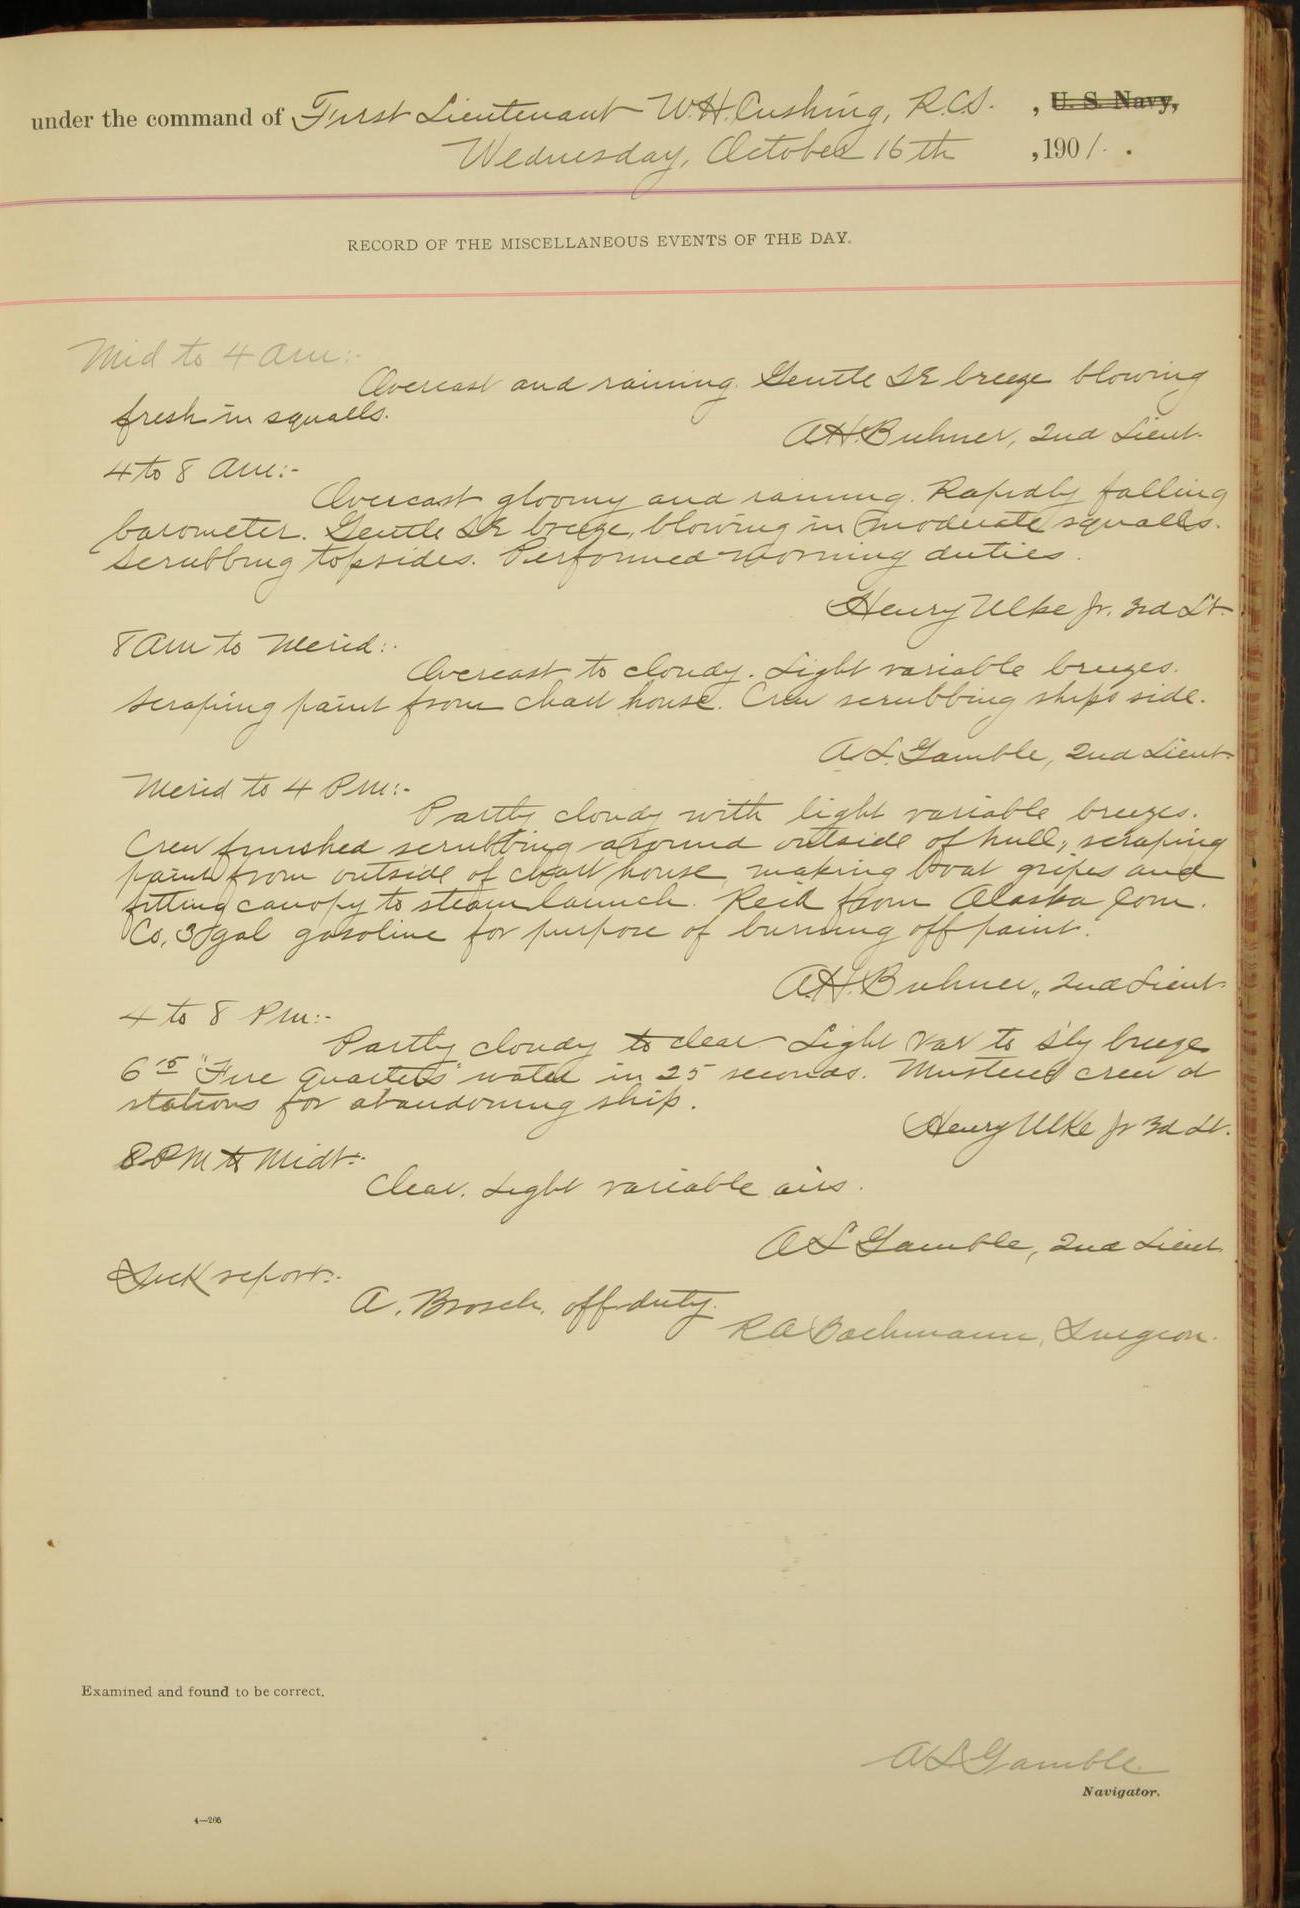 under the command of First Lieutenant W.H. Cushing, R.C.S. , U. S. Navy,
Wednesday, October 16th , 1901 .
RECORD OF THE MISCELLANEOUS EVENTS OF THE DAY.
Mid to 4 am:-
Overcast and raining. Gentle SE breeze blowing
fresh in squalls.
A.H. Buhner, 2nd Lieut.
4 to 8 am:-
Overcast gloomy and raining. Rapidly falling
barometer. Gentle SE breeze, blowing in moderate squalls.
Scrubbing topsides. Performed morning duties.
Henry Ulke Jr. 3rd Lt.
8 am to Merid:-
Overcast to cloudy. Light variable breezes.
Scraping paint from chart house. Crew scrubbing ship's side.
A.L. Gamble, 2nd Lieut.
Merid to 4 Pm:-
Partly cloudy with light variable breezes.
Crew finished scrubbing around outside of hull, scraping
paint from outside of chart house, making boat gripes and
fitting canopy to steam launch. Rec'd from Alaska Com.
Co, gal gasoline for purpose of burning off paint.
A.H. Buhner, 2nd Lieut.
4 to 8 Pm:-
Partly cloudy to clear Light var to S'ly breeze
6 15 "Fire Quarters" water in 25 seconds. Mustered crew at
stations for abandoning ship.
Henry Ulke Jr 3d Lt.
8 PM to Midt:-
Clear. Light variable airs.
A L Gamble, 2nd Lieut
Sick report:-
A. Brosch, off duty.
R A Bachmann, Surgeon.
Examined and found to be correct.
A L Gamble
Navigator.
4—266